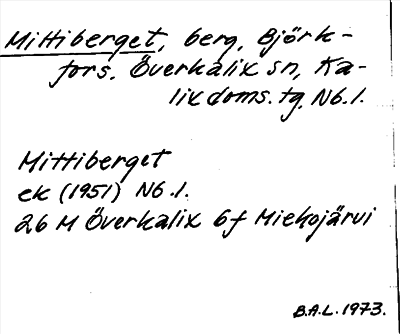 Mittiberget, berg, Björk-
fors, Överkalix sn, Ka-
lix doms. tg, Nb.l.
Mittiberget
ek (1951) Nb.l.
26 M Överkalix 6f Miekojärvi
B.A.L. 1973.